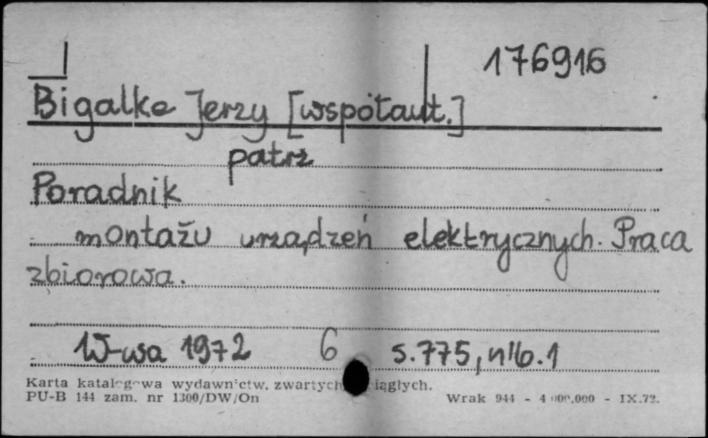 176916
Bigalke Jerzy [współaut.]
patrz
Poradnik
montażu urządzeń elektrycznych. Praca
zbiorowa.
W-wa 1972 6 s.775, nlb.1
Karta katalogowa wydawnictw. zwartych iągłych.
PU-B 144 zam. nr 1300/DW/On Wrak 944 - 4 000.000 - IX.72.